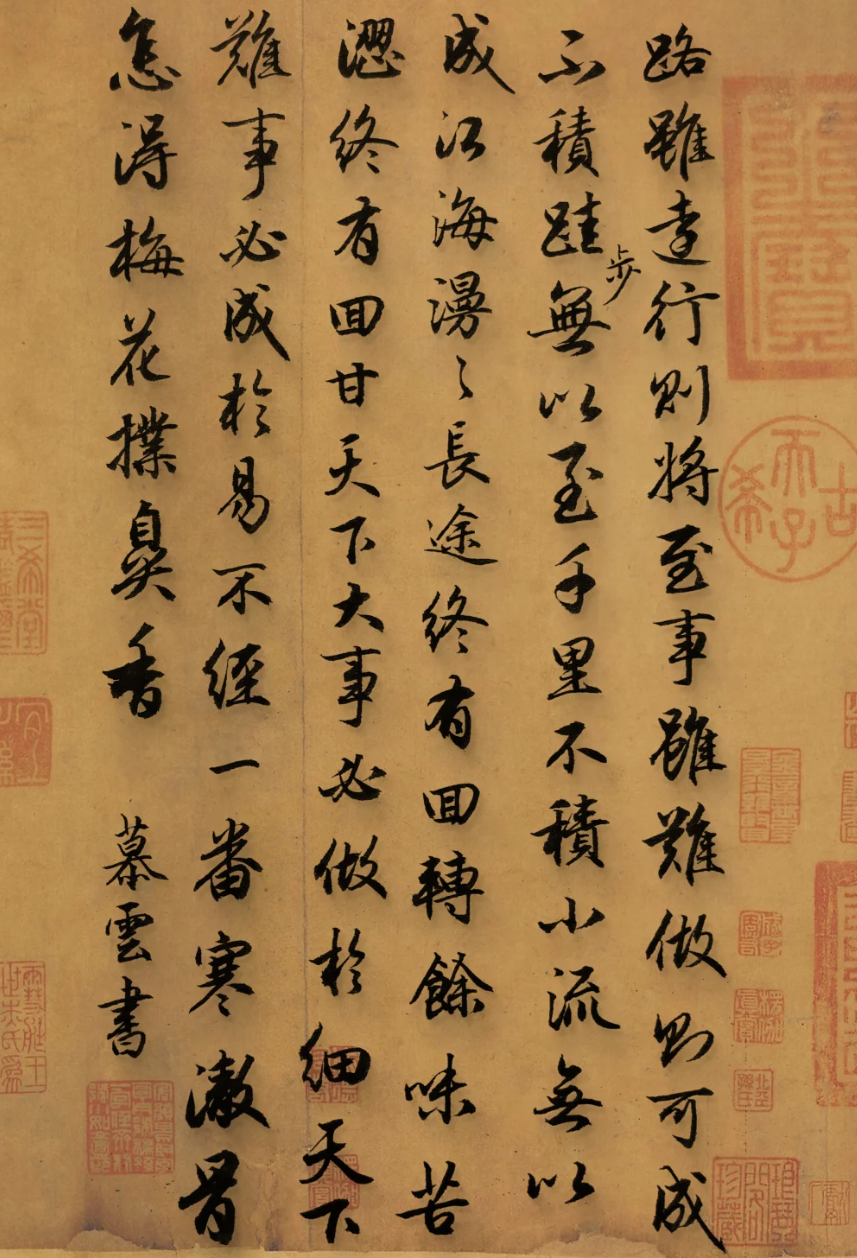 路雖遠行則將至事雖難做則可成
不積跬步無以至千里不積小流無以
成江海漫々長途終有囬轉餘味苦
澀終有囬甘天下大事必做於細天下
難事必成於易不經一番寒澈骨
怎得梅花撲鼻香
慕雲書
古希天子